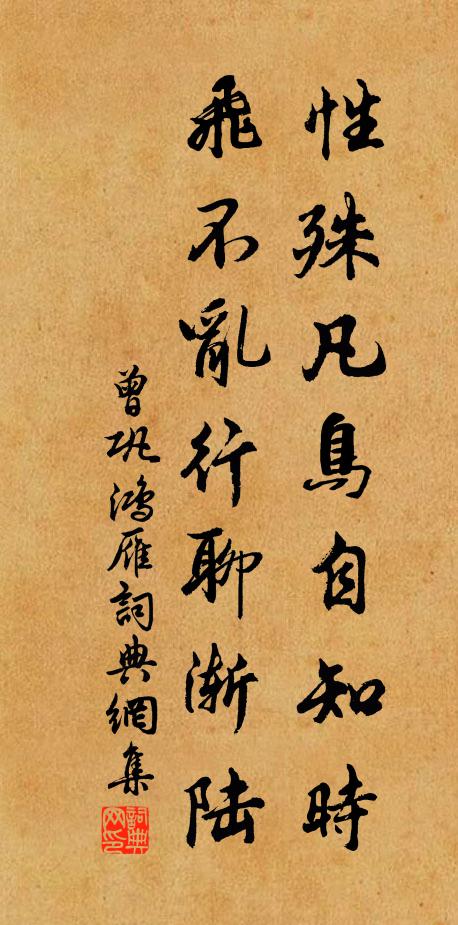 性殊凡鳥自知時
飛不亂行聊漸陆
曾巩鴻雁詞典網集
詞典网印